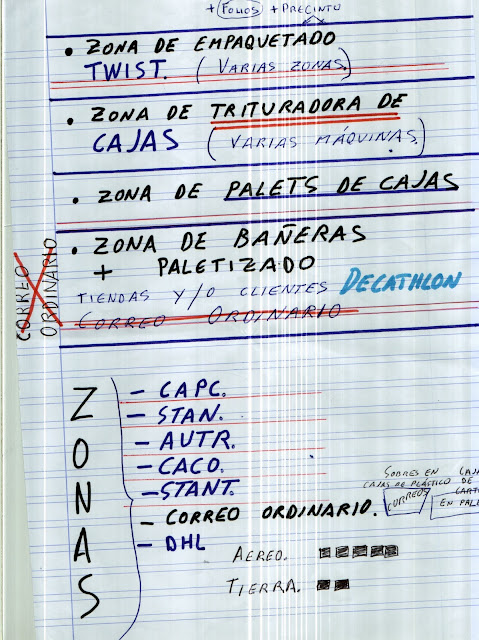 + FOLIOS + PRECINTO
• ZONA DE EMPAQUETADO
TWIST. (VARIAS ZONAS)
• ZONA DE TRITURADORA DE
CAJAS (VARIAS MÁQUINAS.)
• ZONA DE PALETS DE CAJAS
• ZONA DE BAÑERAS
+ PALETIZADO
TIENDAS Y/O CLIENTES DECATHLON
CORREO ORDINARIO
CORREO
ORDINARIO
ZONAS
- CAPC.
- STAN.
- AUTR.
- CACO.
- STANT.
- CORREO ORDINARIO.
SOBRES EN
CAJAS DE PLÁSTICO
CORREOS
CAJA
DE
CART
EN PALE
- DHL
AEREO.
TIERRA.